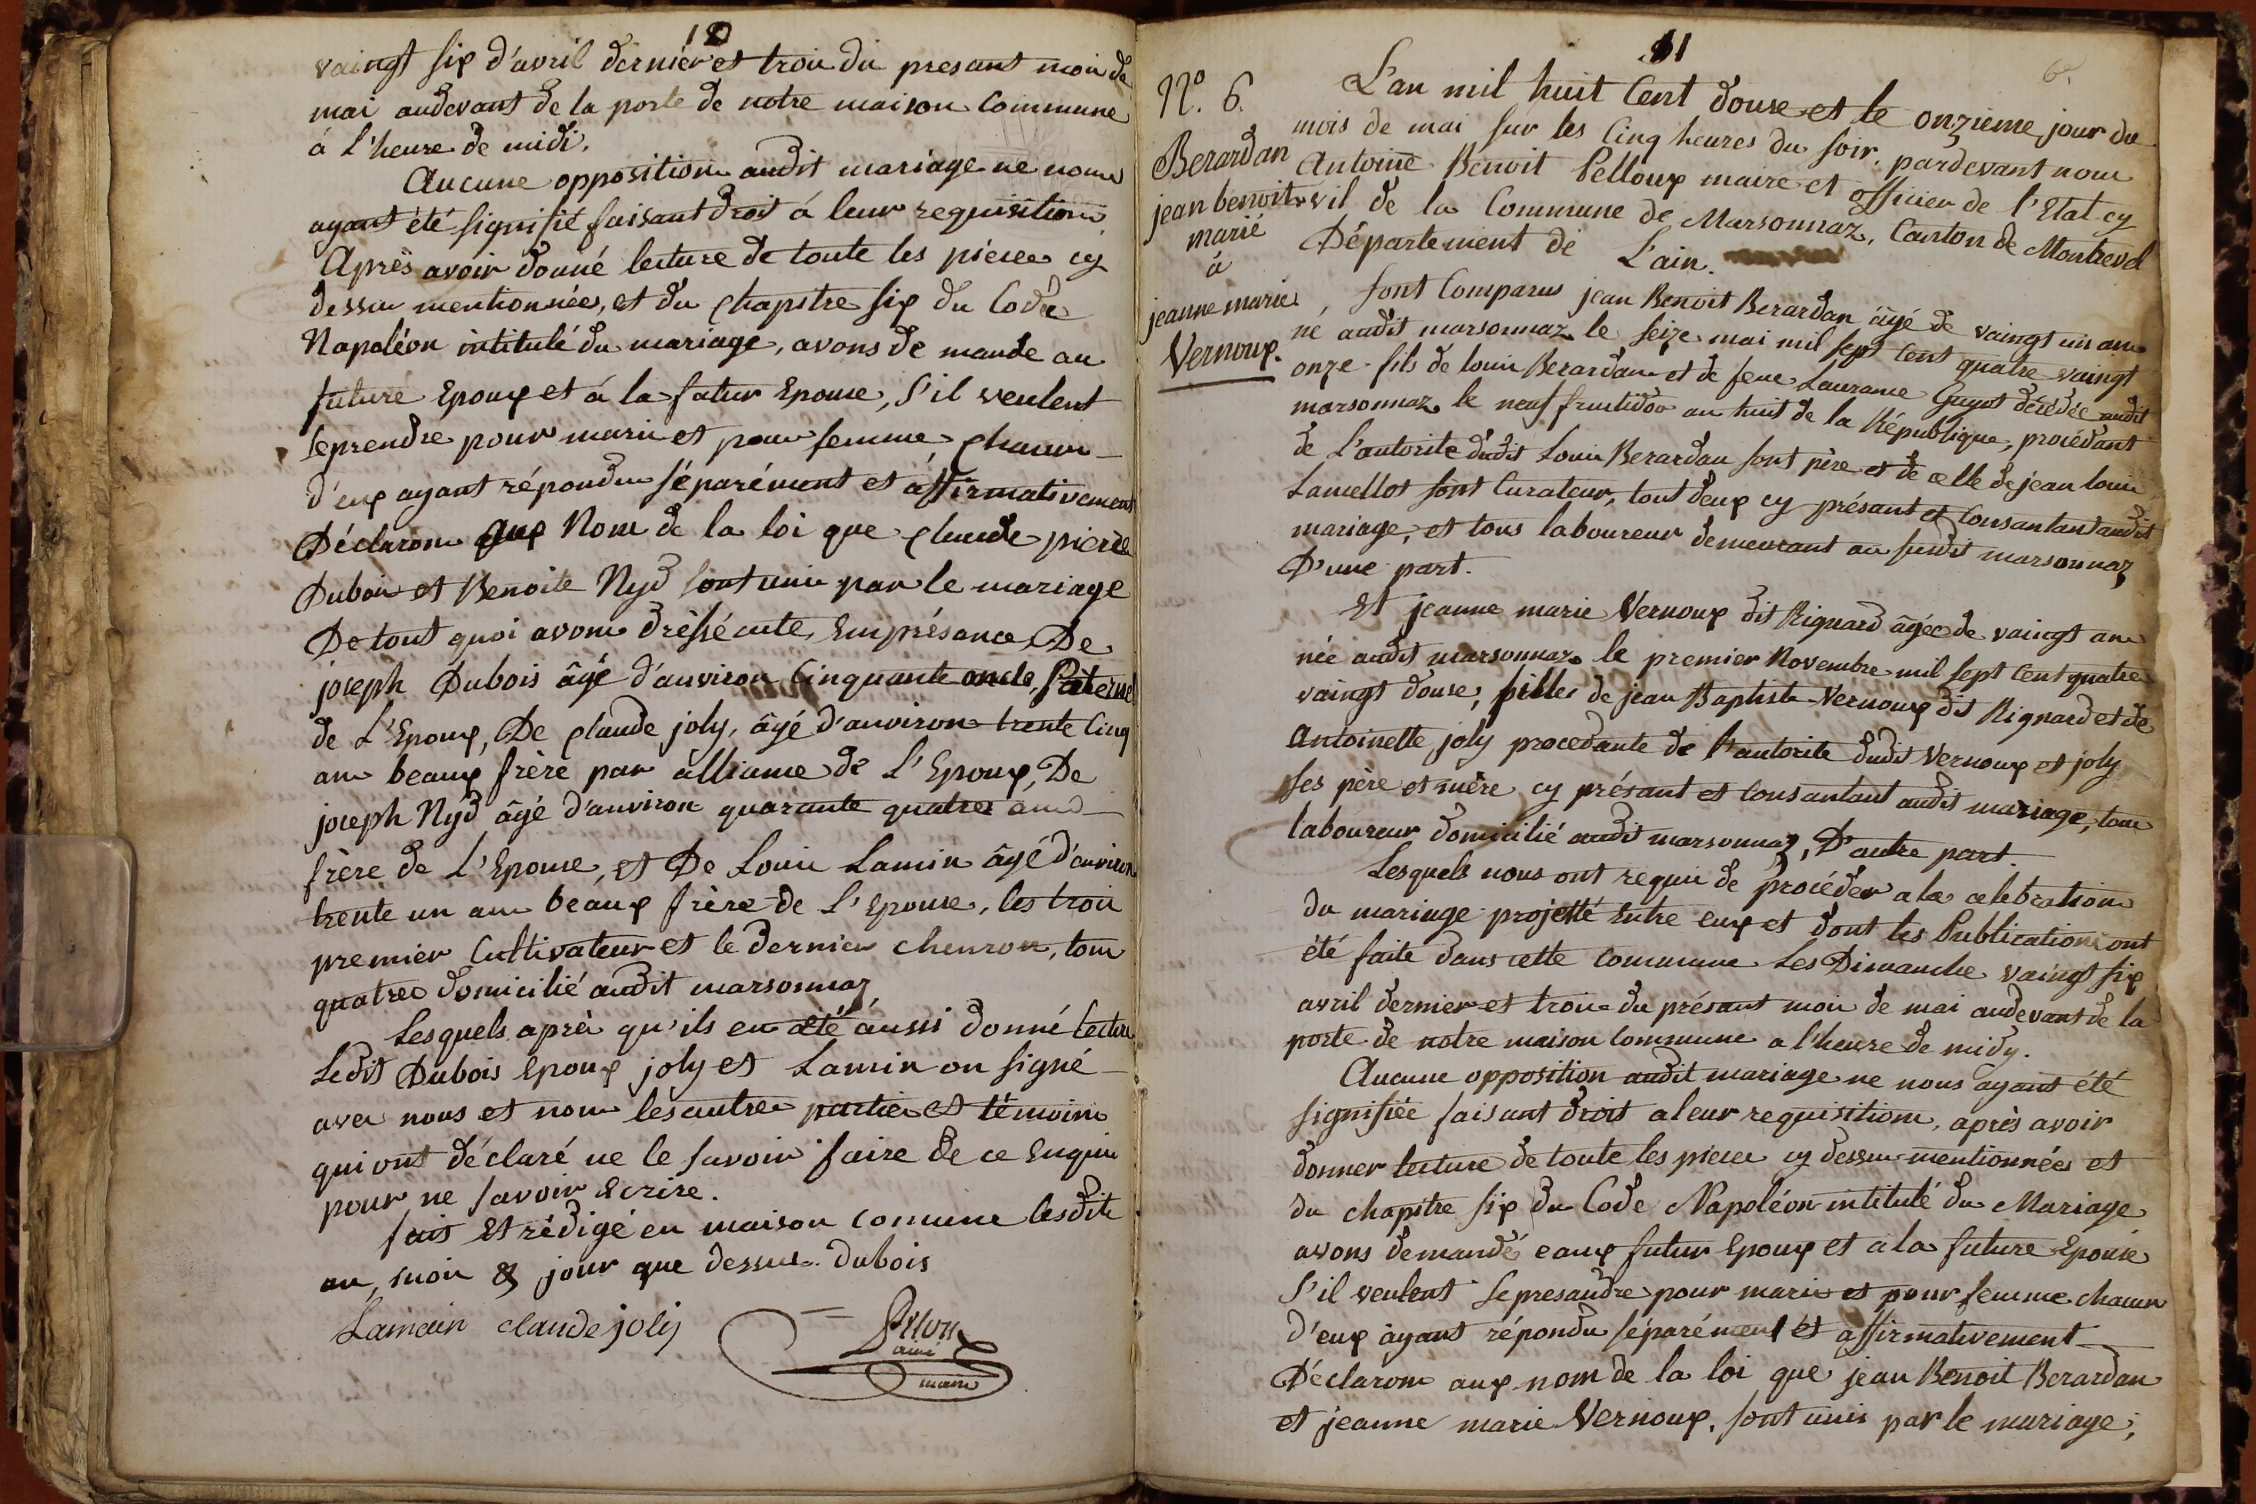 10
vaingt six d'avril dernier et trois du presant mois de
mai audevant de la porte de notre maison Commune
à l'heure de midi.
Aucune opposition audit mariage ne nous
ayant été signifié faisant droit à leur requisition,
Après avoir donné lecture de toute les pièces cy
dessus mentionnées, et du chapitre six du Code
Napoléon intitulé du mariage, avons de mandé au
future Epoux et à la futur Epouse, s'il veulent
se prendre pour marie et pour femme, chacun
d'eux ayant répondu séparément et affirmativement
Déclarons aux Nom de la loi que claude pierre
Dubois et Benoite Nyd sont unis par le mariage
De tout quoi avons dréssé acte, En présance De
joseph Dubois âgé d'anviron Cinquante oncle, Paternel
de L'Epoux, De claude joly, âgé d'anviron trente Cinq
ans beaux frère par alliance de L'Epoux, De
joseph Nyd âgé d'anviron quarante quatre ans
frère de L'Epouse, et De Louis Lamin âgé d'anviron
trente un ans beaux frère de L'Epouse, les trois
premier Cultivateur et le dernier charron, tous
quatre domicilié audit marsonnaz
Lesquels après qu'ils en a été aussi donné lecture
Ledit Dubois Epoux joly et Lamin on signé
avec nous et non les autres parties et témoins
qui ont déclaré ne le savoir faire de ce Enquis
pour ne savoir Ecrire.
fait Et rédigé en maison comune lesdits
an, mois & jour que dessus. Dubois
Lamain claude joly
Peloux
ainé
maire
11
6.
N.° 6.
Berardan
jean benoit
marié
à
jeanne marie
Vernoux.
L'an mil huit Cent douse et le onzieme jour du
mois de mai sur les Cinq heures du soir, pardevant nous
Antoine Benoit Pelloux maire et officier de l'Etat cy
vil de la Commune de Marsonnaz, Canton de Montrevel
Département de L'ain.
sont Comparus jean Benoit Berardan âgé de vaingt un ans
né audit marsonnaz le seize mai mil sept Cent quatre vaingt
onze fils de louis Berardan et de feue Laurance Guyot décédée audit
marsonnaz le neuf fructidor an huit de la République, procédant
de L'autorite dudit Louis Berardan sont père et de celle de jean louis
Lamellot sont Curateur, tout deux cy présant et Consantant audit
mariage, et tous laboureur demeurant au susdit marsonnaz
D'une part.
Et jeanne marie Vernoux dit Rignard âgée de vaingt ans
née audit marsonnaz le premier Novembre mil sept Cent quatre
vaingt douse, filles de jean Baptiste Vernoux dit Rignard et de
Antoinette joly procedante de l'autorite dudit Vernoux et joly
ses père et mère cy présant et Consantant audit mariage, tous
laboureur domicilié audit marsonnaz, D'autre part.
Lesquels nous ont requis de procéder a la celebration
du mariage projetté Entre eux et dont les Publications ont
été faite dans cette Commune Les Dimanche vaingt six
avril dernier et trois du présant mois de mai audevant de la
porte de notre maison Commune a l'heure de midy.
Aucune opposition audit mariage ne nous ayant été
signifiée faisant droit a leur requisitions, après avoir
donner lecture de toute les pieces cy dessus mentionnées et
du chapitre six du Code Napoléon intitulé du Mariage
avons demandé eaux futur Epoux et a la future Epouse
S'il veulent Se presandre pour marie et pour femme chacun
d'eux ayant répondu séparément et affirmativement
Déclarons aux nom de la loi que jean Benoit Berardan
et jeanne marie Vernoux, sont unis par le mariage;